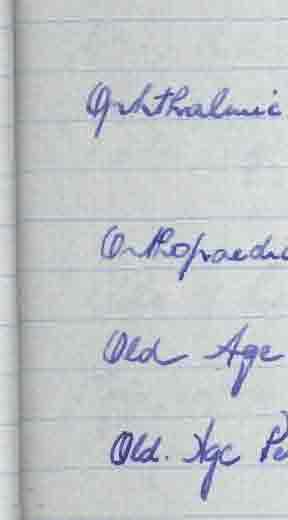 Ophthalmic
Orthopaedic
Old Age
Old. Age Pe